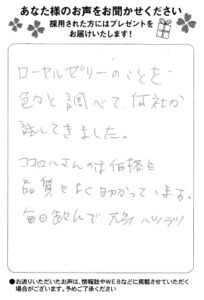 あなた様のお声をお聞かせください
採用された方にはプレゼントを
お届けいたします！
ローヤルゼリーのことを
色々と調べて、何社か
試してきました。
ココロハさんのは価格も
品質もよく助かっています。
毎日飲んで元気ハツラツ
●お送りいただいたお声は、情報誌やWEBなどに掲載させていただく
場合がございます。予めご了承ください